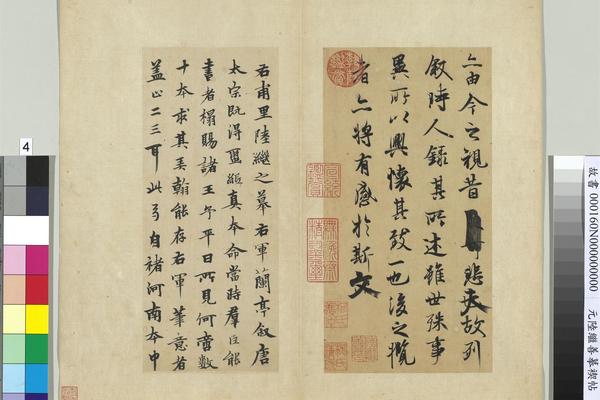 亦由今之視昔悲夫故列
敘時人錄其所述雖世殊事
異所以興懷其致一也後之攬
者亦將有感於斯文
右甫里陸繼之摹右軍蘭亭敘唐
太宗既得繭紙真本命當時群臣能
書者搨賜諸王予平日所見何啻數
十本求其美翰能存右軍筆意者
蓋止二三耳此乃自褚河南本中
故書 000160N000000000 元陸繼善摹禊帖
4